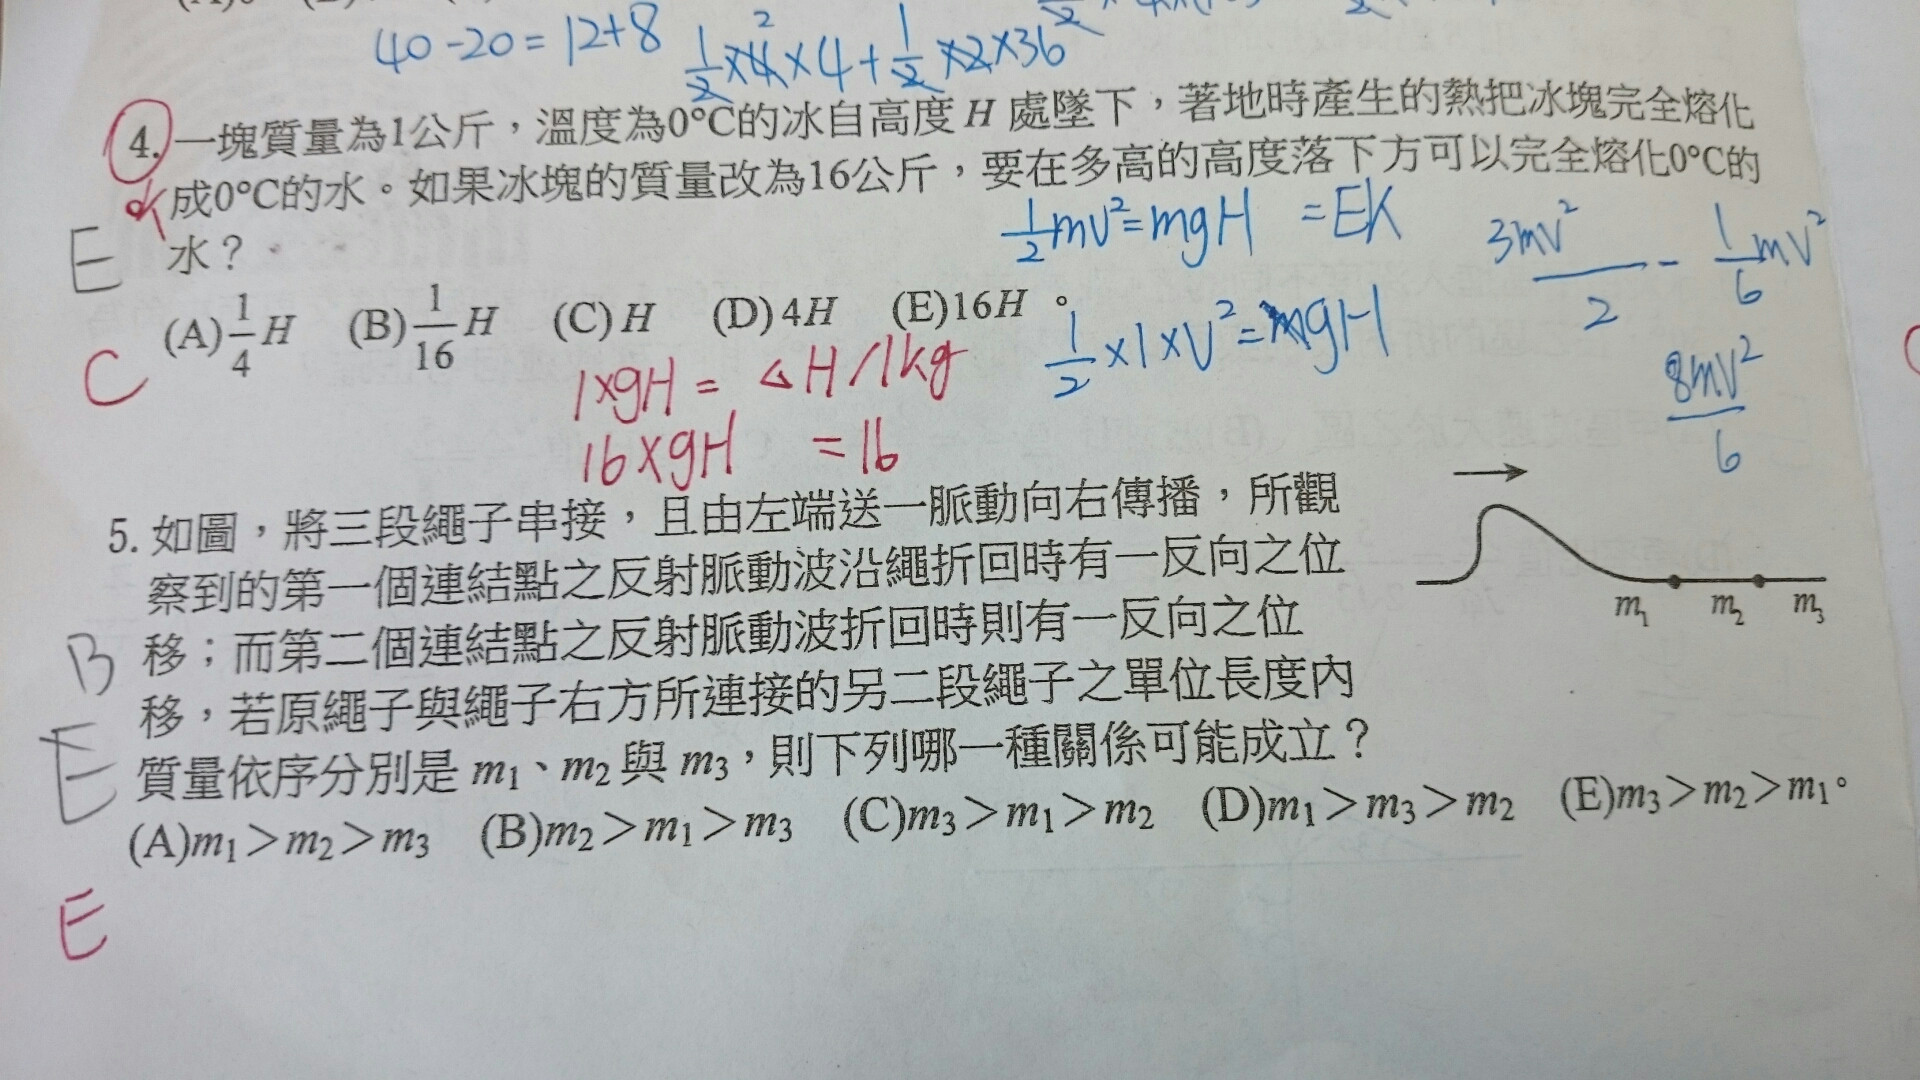 40-20=12+8 1/2×4×4+1/2×2×36
2
4.一塊質量為1公斤，溫度為0°C的冰自高度 H 處墜下，著地時產生的熱把冰塊完全熔化
成0°C的水。如果冰塊的質量改為16公斤，要在多高的高度落下方可以完全熔化0°C的
水？
E
1/2mv²=mgH =EK
3mv²/2 - 1/6mv²
(A)1/4H (B)1/16H (C)H (D)4H (E)16H。
C
1×gH= △H/1kg
1/2×1×v²=mgH
8mv²/6
16×gH =16
5.如圖，將三段繩子串接，且由左端送一脈動向右傳播，所觀
察到的第一個連結點之反射脈動波沿繩折回時有一反向之位
移；而第二個連結點之反射脈動波折回時則有一反向之位
移，若原繩子與繩子右方所連接的另二段繩子之單位長度內
質量依序分別是 m₁、m₂ 與 m₃，則下列哪一種關係可能成立？
m₁ m₂ m₃
B
E
(A)m₁>m₂>m₃ (B)m₂>m₁>m₃ (C)m₃>m₁>m₂ (D)m₁>m₃>m₂ (E)m₃>m₂>m₁。
E